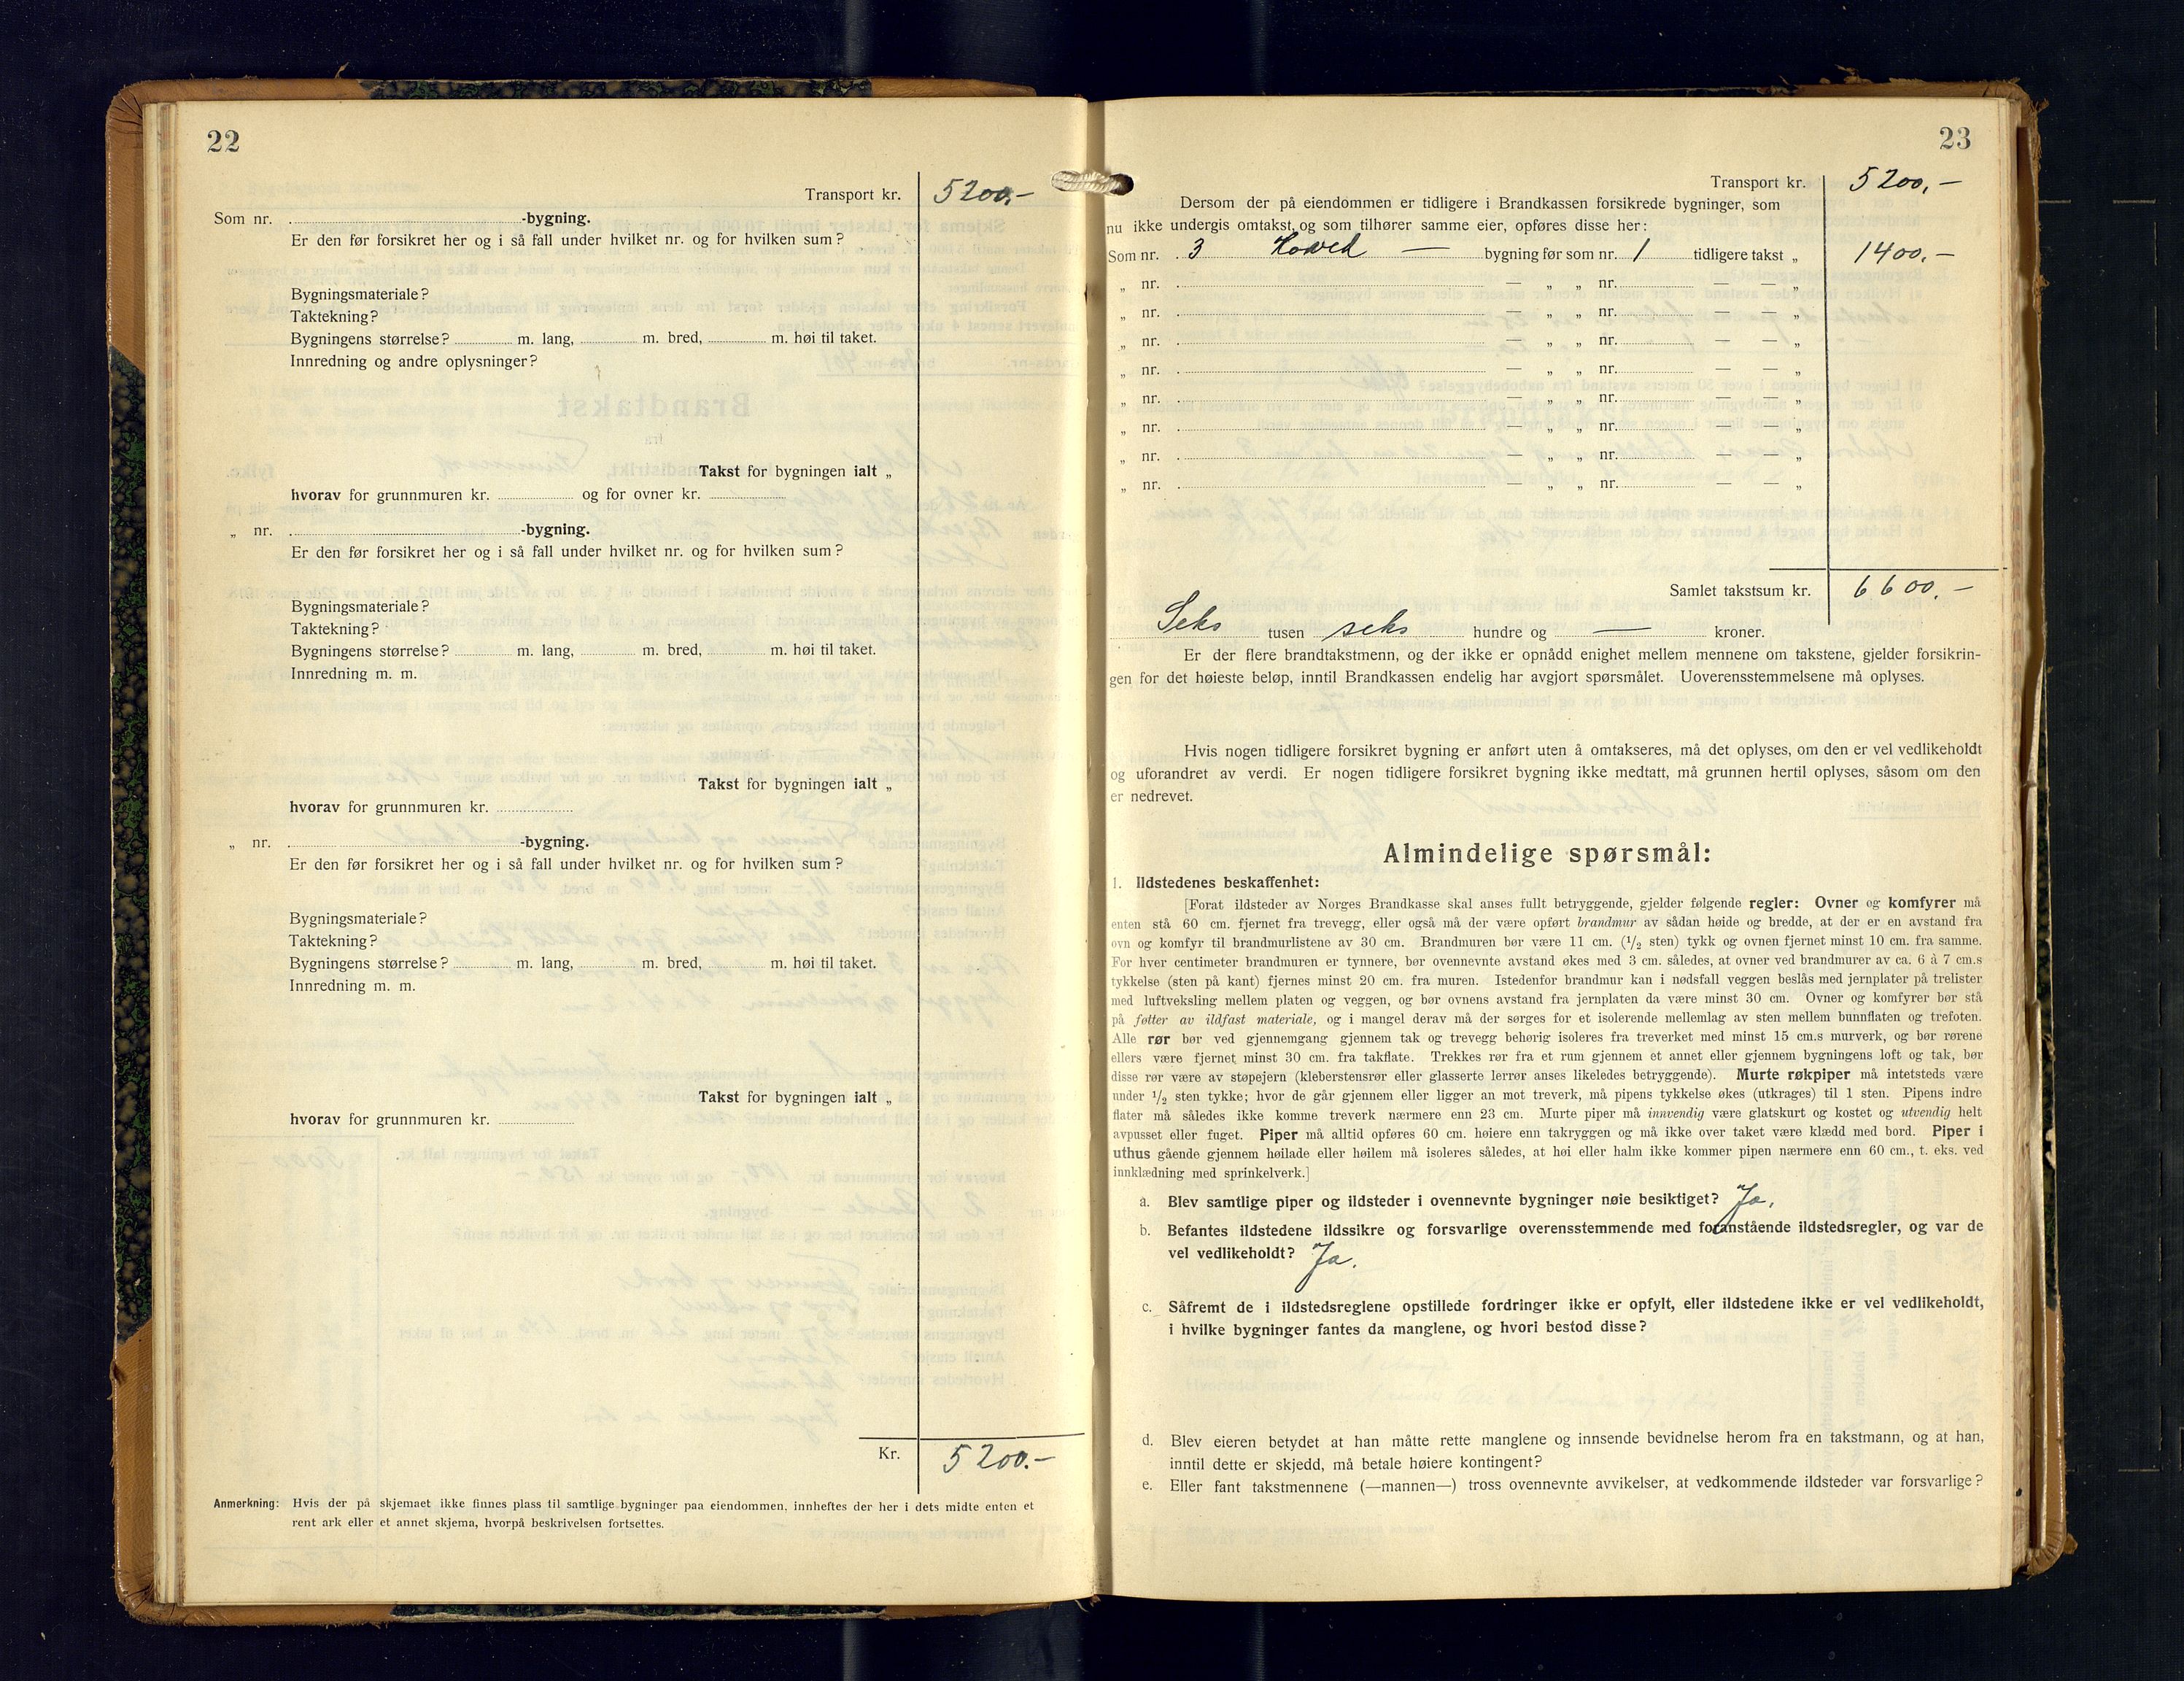 22
Transport kr. 5200,-
Som nr. -bygning.
Er den før forsikret her og i så fall under hvilket nr. og for hvilken sum?
Bygningsmateriale?
Taktekning?
Bygningens størrelse? m. lang, m. bred, m. høi til taket.
Innredning og andre oplysninger?
Takst for bygningen ialt „
hvorav for grunnmuren kr. og for ovner kr.
„ nr. -bygning.
Er den før forsikret her og i så fall under hvilket nr. og for hvilken sum?
Bygningsmateriale?
Taktekning?
Bygningens størrelse? m. lang, m. bred, m. høi til taket.
Innredning m. m.
Takst for bygningen ialt „
hvorav for grunnmuren kr.
„ nr. -bygning.
Er den før forsikret her og i så fall under hvilket nr. og for hvilken sum?
Bygningsmateriale?
Taktekning?
Bygningens størrelse? m. lang, m. bred, m. høi til taket.
Innredning m. m.
Takst for bygningen ialt „
hvorav for grunnmuren kr.
Kr. 5200.-
Anmerkning: Hvis der på skjemaet ikke finnes plass til samtlige bygninger paa eiendommen, innheftes der her i dets midte enten et
rent ark eller et annet skjema, hvorpå beskrivelsen fortsettes.
23
Transport kr. 5200,-
Dersom der på eiendommen er tidligere i Brandkassen forsikrede bygninger, som
nu ikke undergis omtakst, og som tilhører samme eier, opføres disse her:
Som nr. 3 Hoved — bygning før som nr. 1 tidligere takst „ 1400,-
„ nr. — „ „ nr. — — „
„ nr. — „ „ nr. — — „
„ nr. — „ „ nr. — — „
„ nr. — „ „ nr. — — „
„ nr. — „ „ nr. — — „
„ nr. — „ „ nr. — — „
„ nr. — „ „ nr. — — „
„ nr. — „ „ nr. — — „
Samlet takstsum kr. 6600.-
Seks tusen seks hundre og — kroner.
Er der flere brandtakstmenn, og der ikke er opnådd enighet mellem mennene om takstene, gjelder forsikrin-
gen for det høieste beløp, inntil Brandkassen endelig har avgjort spørsmålet. Uoverensstemmelsene må oplyses.
Hvis nogen tidligere forsikret bygning er anført uten å omtakseres, må det oplyses, om den er vel vedlikeholdt
og uforandret av verdi. Er nogen tidligere forsikret bygning ikke medtatt, må grunnen hertil oplyses, såsom om den
er nedrevet.
Almindelige spørsmål:
1. Ildstedenes beskaffenhet:
[Forat ildsteder av Norges Brandkasse skal anses fullt betryggende, gjelder følgende regler: Ovner og komfyrer må
enten stå 60 cm. fjernet fra trevegg, eller også må der være opført brandmur av sådan høide og bredde, at der er en avstand fra
ovn og komfyr til brandmurlistene av 30 cm. Brandmuren bør være 11 cm. (1/2 sten) tykk og ovnen fjernet minst 10 cm. fra samme.
For hver centimeter brandmuren er tynnere, bør ovennevnte avstand økes med 3 cm. således, at ovner ved brandmurer av ca. 6 à 7 cm.s
tykkelse (sten på kant) fjernes minst 20 cm. fra muren. Istedenfor brandmur kan i nødsfall veggen beslås med jernplater på trelister
med luftveksling mellem platen og veggen, og bør ovnens avstand fra jernplaten da være minst 30 cm. Ovner og komfyrer bør stå
på føtter av ildfast materiale, og i mangel derav må der sørges for et isolerende mellemlag av sten mellem bunnflaten og trefoten.
Alle rør bør ved gjennemgang gjennem tak og trevegg behørig isoleres fra treverket med minst 15 cm.s murverk, og bør rørene
ellers være fjernet minst 30 cm. fra takflate. Trekkes rør fra et rum gjennem et annet eller gjennem bygningens loft og tak, bør
disse rør være av støpejern (kleberstensrør eller glasserte lerrør anses likeledes betryggende). Murte røkpiper må intetsteds være
under 1/2 sten tykke; hvor de går gjennem eller ligger an mot treverk, må pipens tykkelse økes (utkrages) til 1 sten. Pipens indre
flater må således ikke komme treverk nærmere enn 23 cm. Murte piper må innvendig være glatskurt og kostet og utvendig helt
avpusset eller fuget. Piper må alltid opføres 60 cm. høiere enn takryggen og må ikke over taket være klædd med bord. Piper i
uthus gående gjennem høilade eller høilem må isoleres således, at høi eller halm ikke kommer pipen nærmere enn 60 cm., t. eks. ved
innklædning med sprinkelverk.]
a. Blev samtlige piper og ildsteder i ovennevnte bygninger nøie besiktiget? Ja.
b. Befantes ildstedene ildssikre og forsvarlige overensstemmende med foranstående ildstedsregler, og var de
vel vedlikeholdt? Ja.
c. Såfremt de i ildstedsreglene opstillede fordringer ikke er opfylt, eller ildstedene ikke er vel vedlikeholdt,
i hvilke bygninger fantes da manglene, og hvori bestod disse?
d. Blev eieren betydet at han måtte rette manglene og innsende bevidnelse herom fra en takstmann, og at han,
inntil dette er skjedd, må betale høiere kontingent?
e. Eller fant takstmennene (—mannen—) tross ovennevnte avvikelser, at vedkommende ildsteder var forsvarlige?